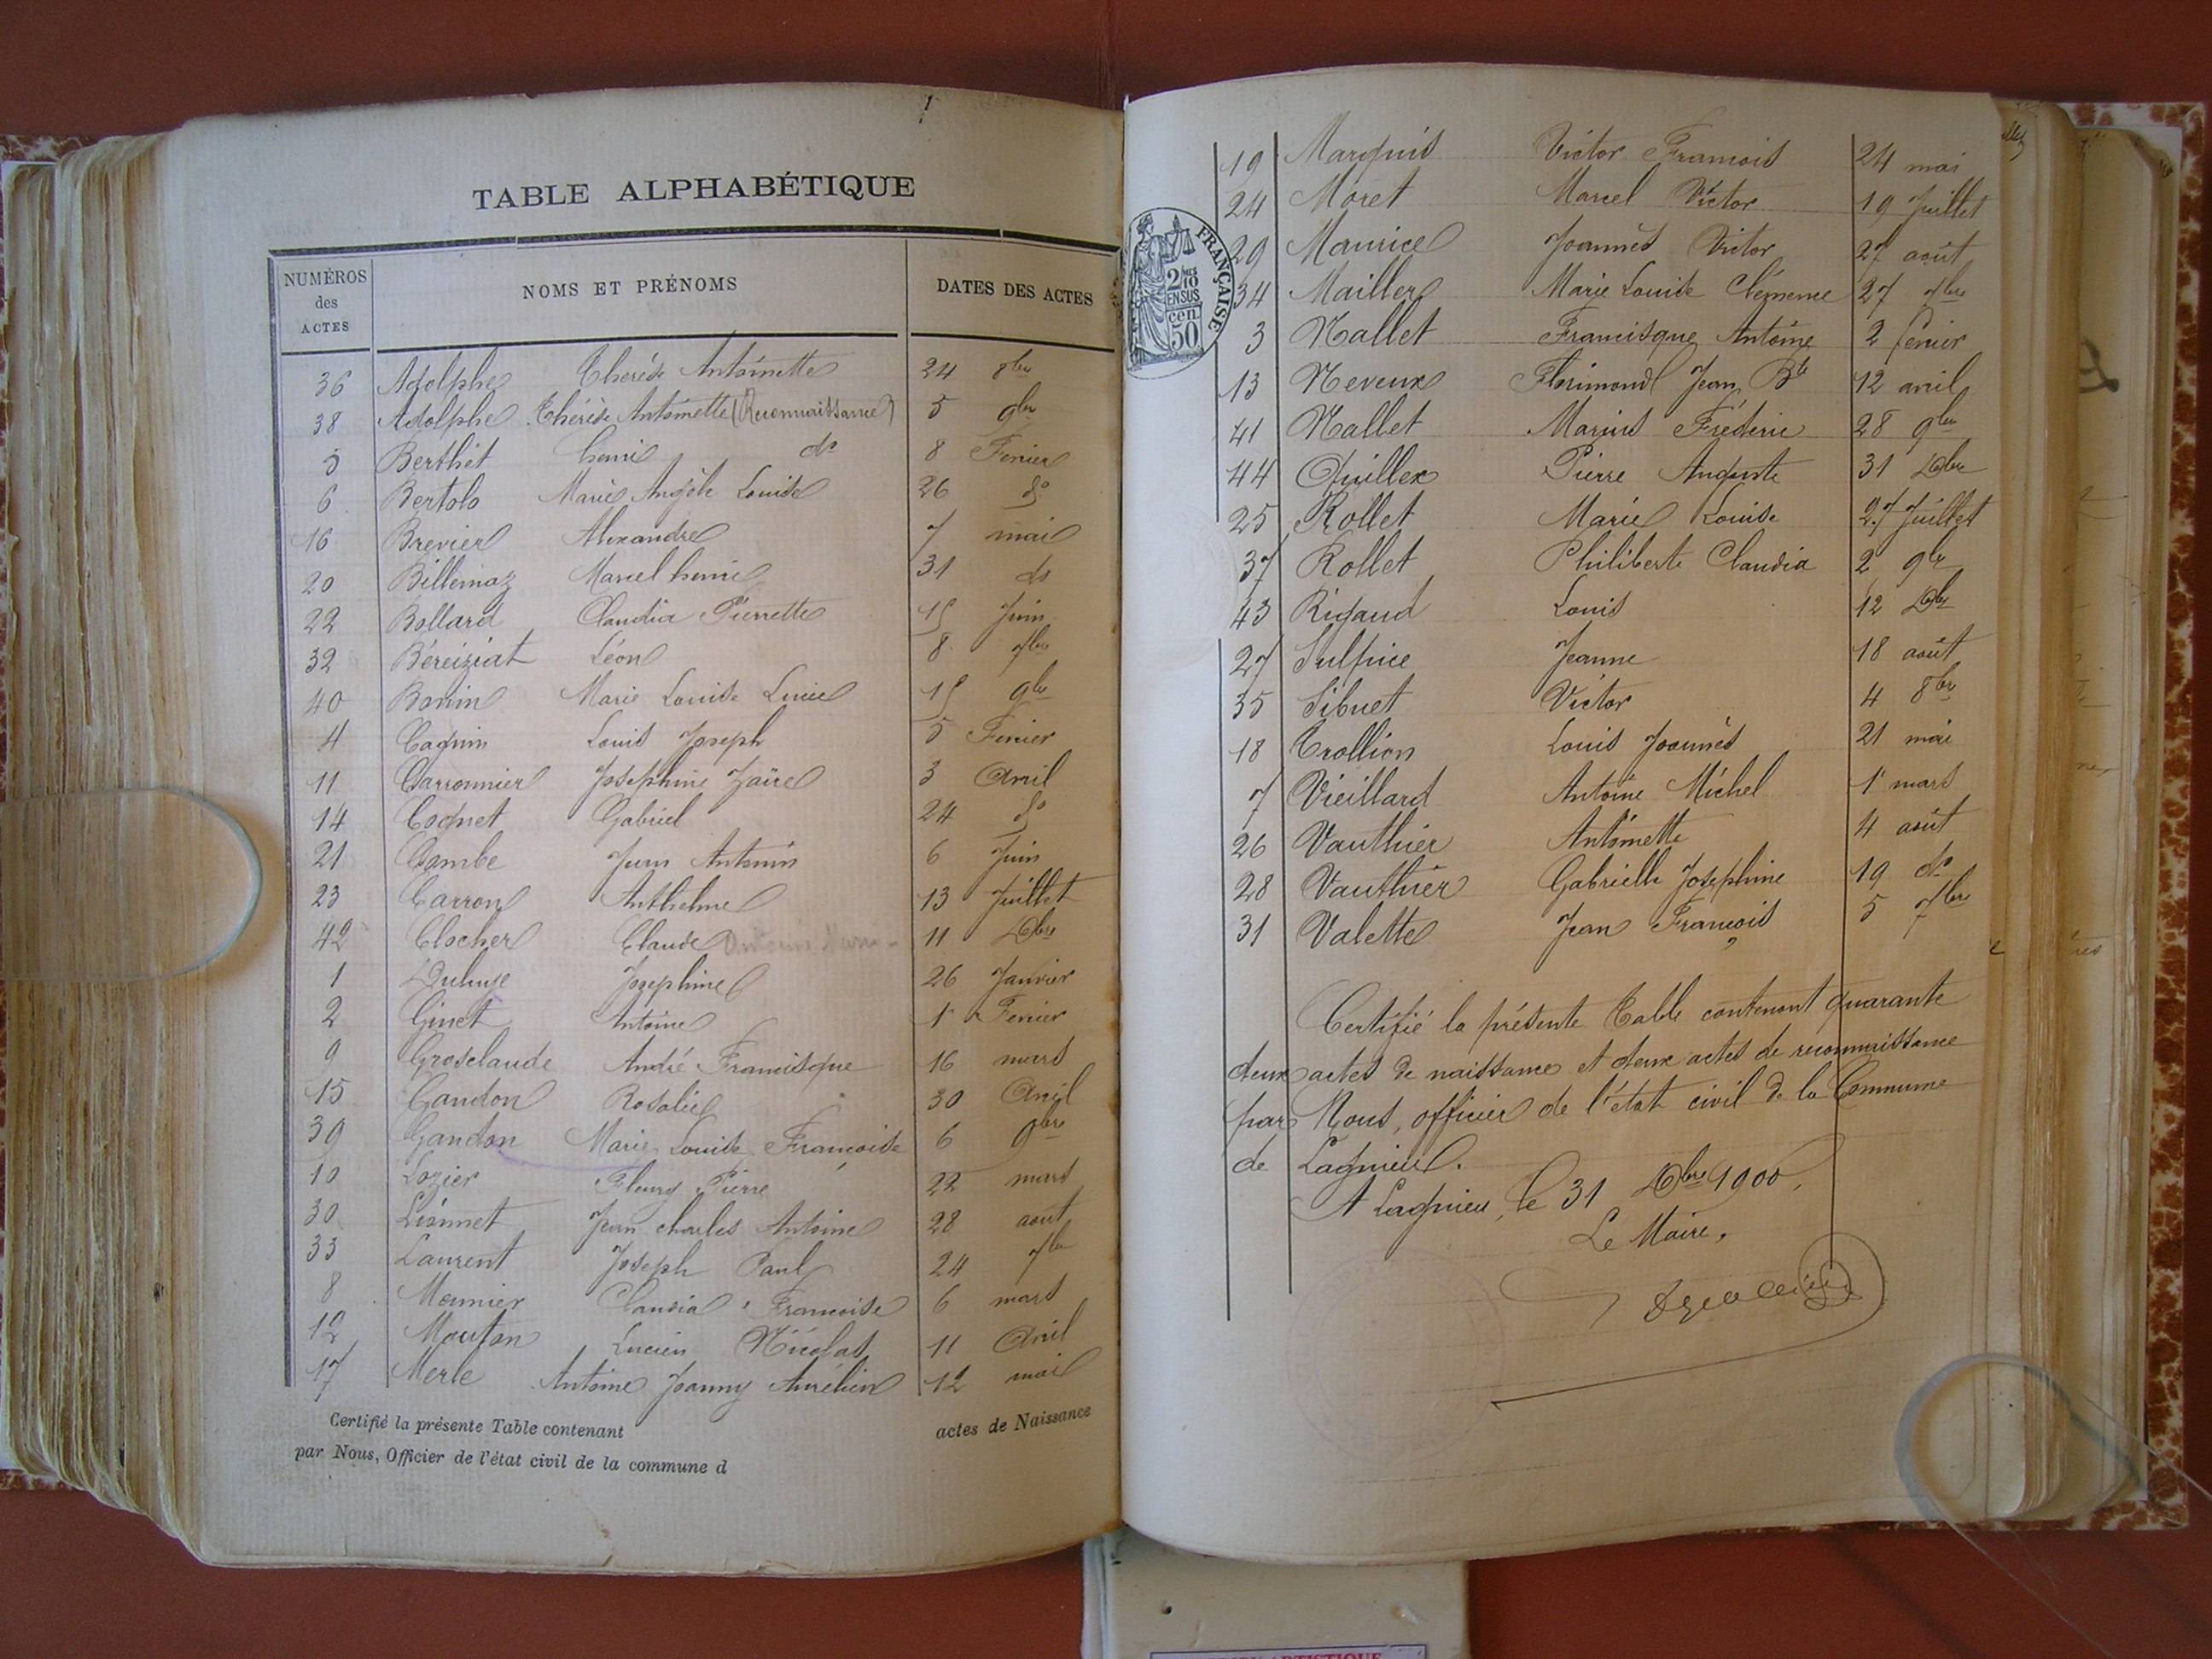 TABLE ALPHABÉTIQUE
NUMÉROS des ACTES NOMS ET PRÉNOMS DATES DES ACTES
36 Adolphe Thérèse Antoinette 24 8bre
38 Adolphe Thérèse Antoinette (Reconnaissance) 5 9bre
5 Berthet henri do 8 Fevrier
6 Bertolo Marie Angèle Louise 26 do
16 Brevier Alexandre 7 mai
20 Billemaz Marcel henri 31 do
22 Bollard Claudia Pierrette 15 Juin
32 Béreiziat Léon 8 7bre
40 Bonin Marie Louise Lucie 15 9bre
4 Cagnin Louis Joseph 5 Fevrier
11 Carronnier Joséphine Zaïre 3 Avril
14 Cognet Gabriel 24 do
21 Combe Jean Antonin 6 Juin
23 Carron Anthelme 13 Juillet
42 Clocher Claude Antoine 11 Xbre
1 Josephine 26 Janvier
2 Ginet Antoine 1 Fevrier
9 Grosclaude André Francisque 16 mars
15 Gandon Rosalie 30 Avril
39 Gandon Marie Louise Françoise 6 9bre
10 Lozier Fleury Pierre 22 mars
30 Jean charles Antoine 28 aout
33 Laurent Joseph Paul 24 7bre
8 Meunier Claudia Francoise 6 mars
12 Mouton Lucien Nicolas 11 Avril
17 Merle Antoine Joanny Aurélien 12 mai
Certifié la présente Table contenant actes de Naissance
par Nous, Officier de l'état civil de la commune d
19 Marquis Victor Francois 24 mai
24 Moret Marcel Victor 19 Juillet
29 Maurice Joannès Victor 27 août
34 Mailler Marie Louise Clémence 27 7bre
3 Nallet Francisque Antoine 2 fevrier
13 Neveux Florimond Jean Bte 12 avril
41 Nallet Marius Fréderic 28 9bre
44 Quillex Pierre Auguste 31 Xbre
25 Rollet Marie Louise 27 Juillet
37 Rollet Philiberte Claudia 2 9bre
43 Rigaud Louis 12 Xbre
27 Sulpice Jeanne 18 août
35 Sibuet Victor 4 8bre
18 Trollion Louis Joannès 21 mai
7 Vieillard Antoine Michel 1 mars
26 Vauthier Antoinette 4 août
28 Vauthier Gabrielle Josephine 19 do
31 Valette Jean François 5 7bre
FRANÇAISE
2/10
EN SUS
50 cen.
Certifié la présente Table contenant quarante
deux actes de naissance et deux actes de reconnaissance
par Nous, officier de l'état civil de la Commune
de Lagnieu.
A Lagnieu, le 31 Xbre 1900,
Le Maire,